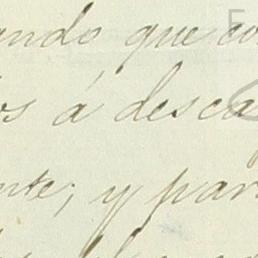 ando que co
os á desca
nte; y par